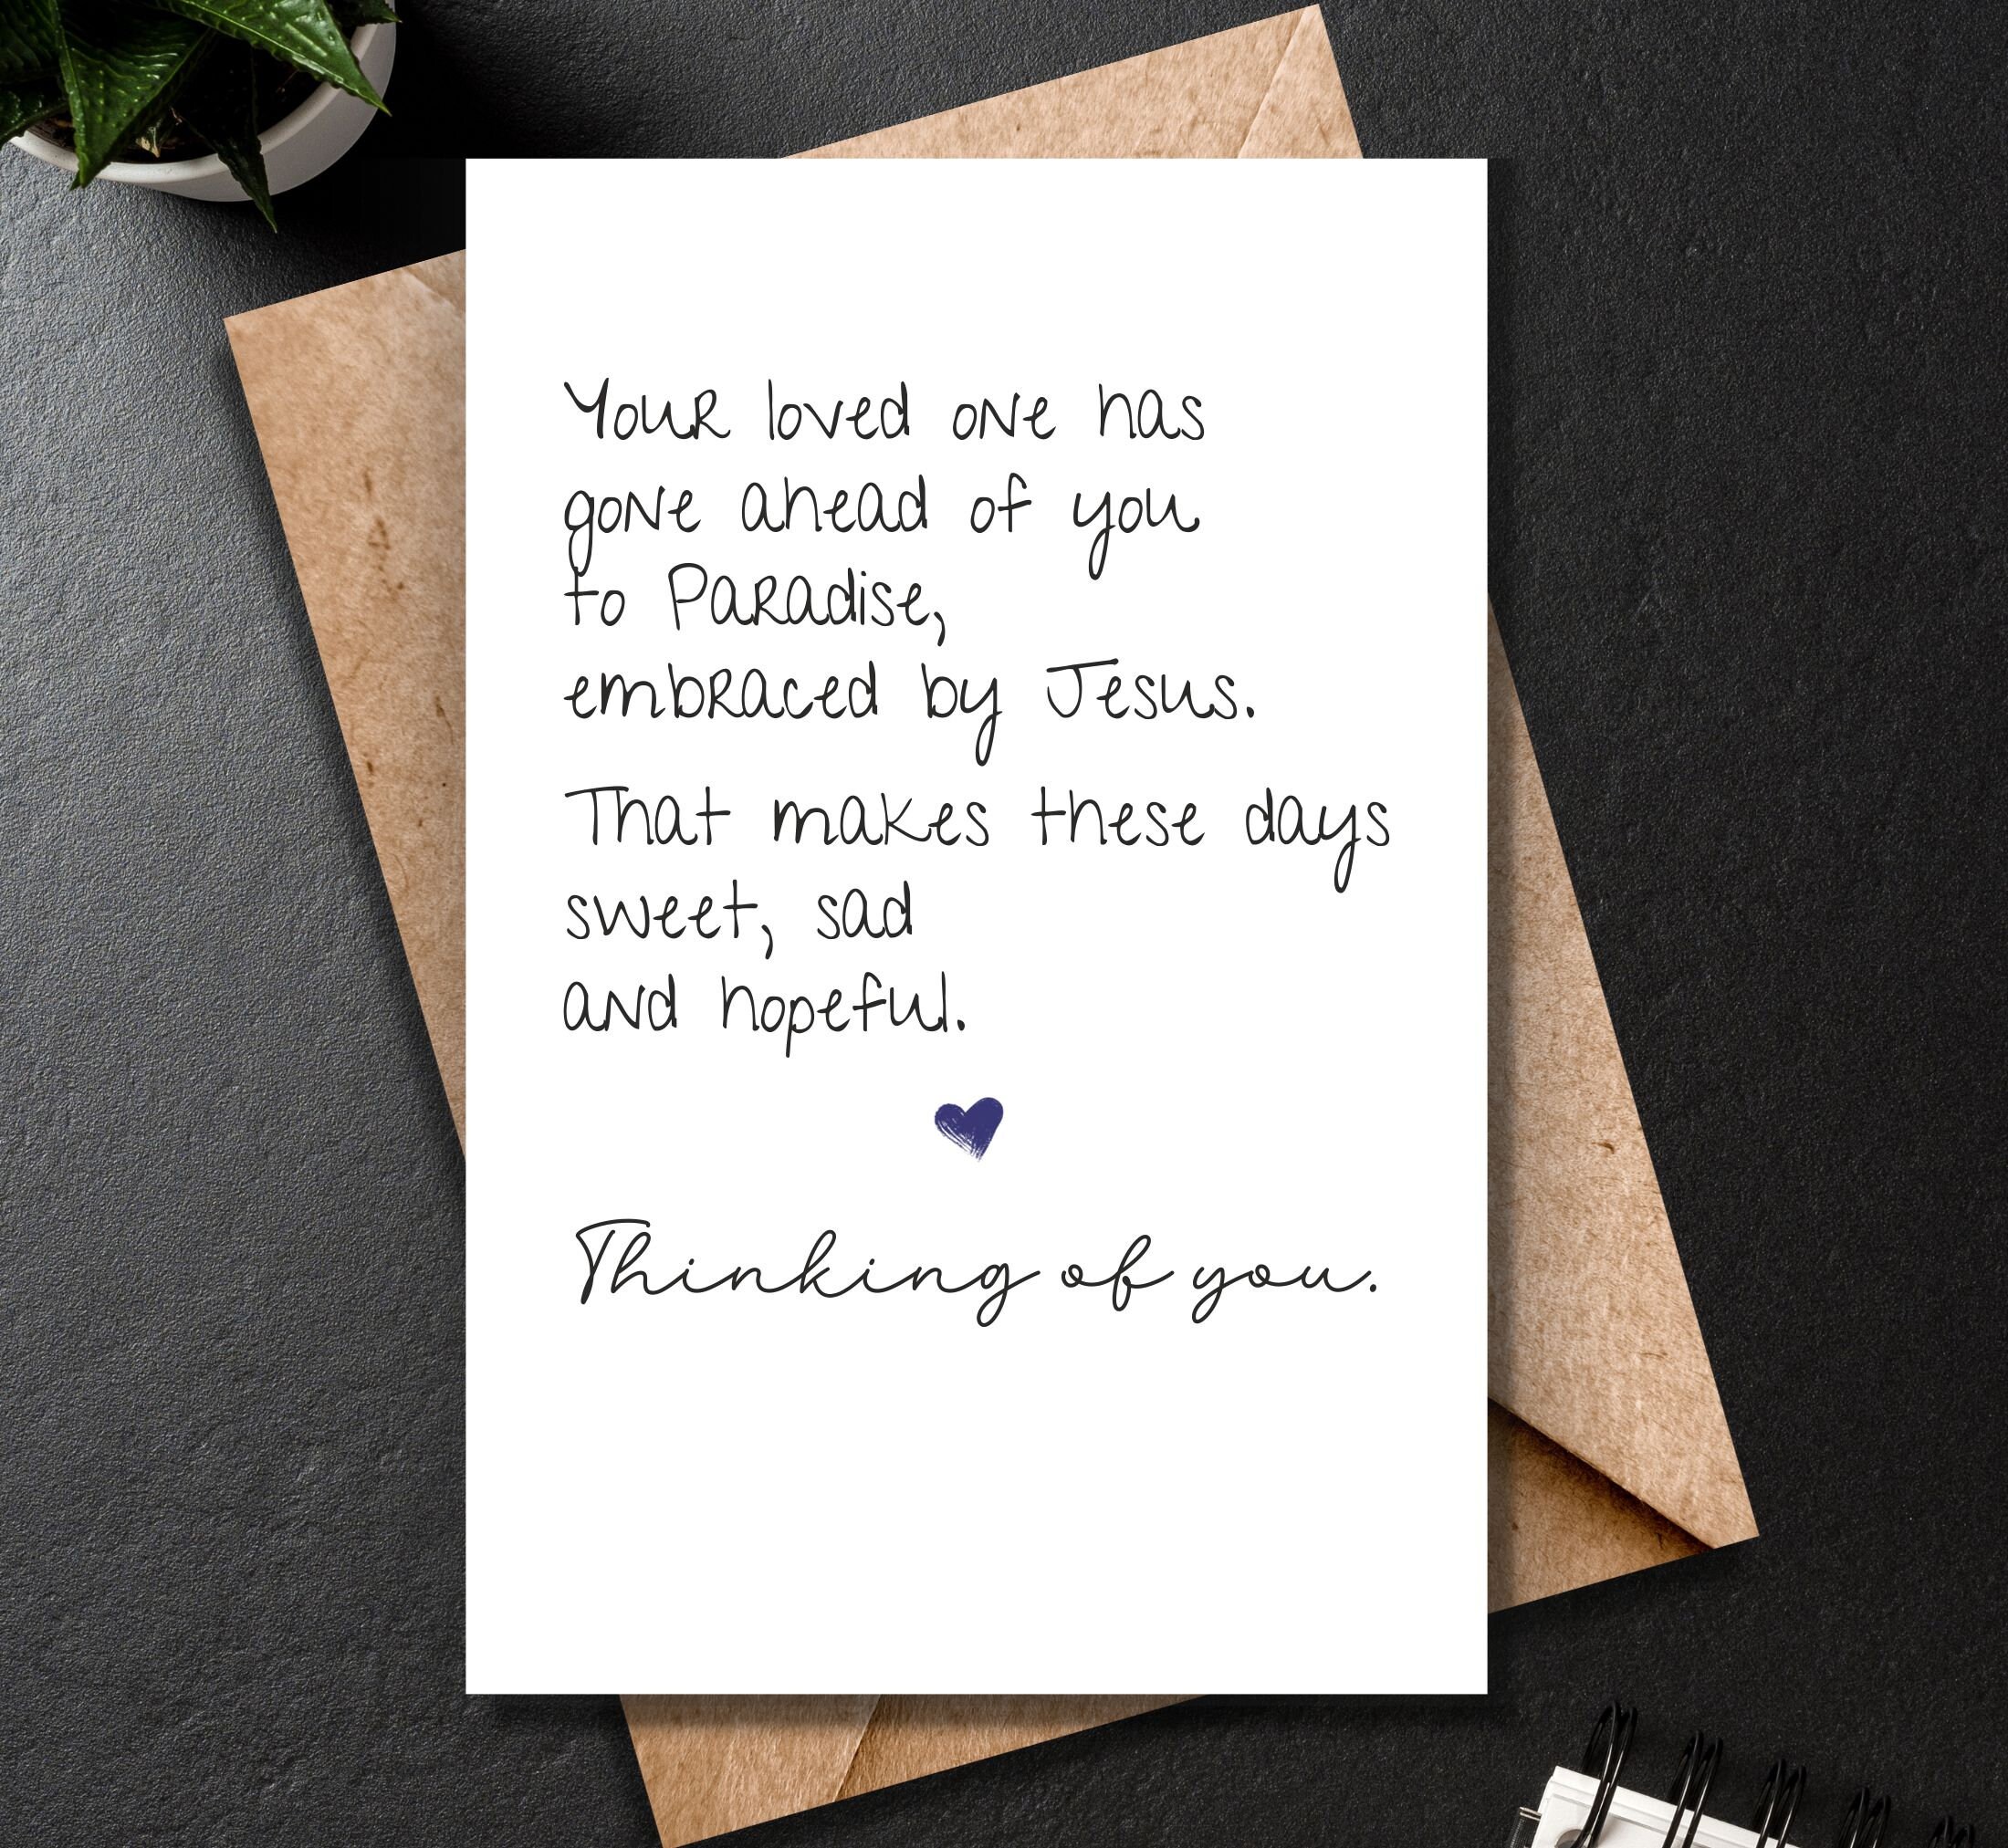 Your loved one has
gone ahead of you
to Paradise,
embraced by Jesus.
That makes these days
sweet, sad
and hopeful.
Thinking of you.